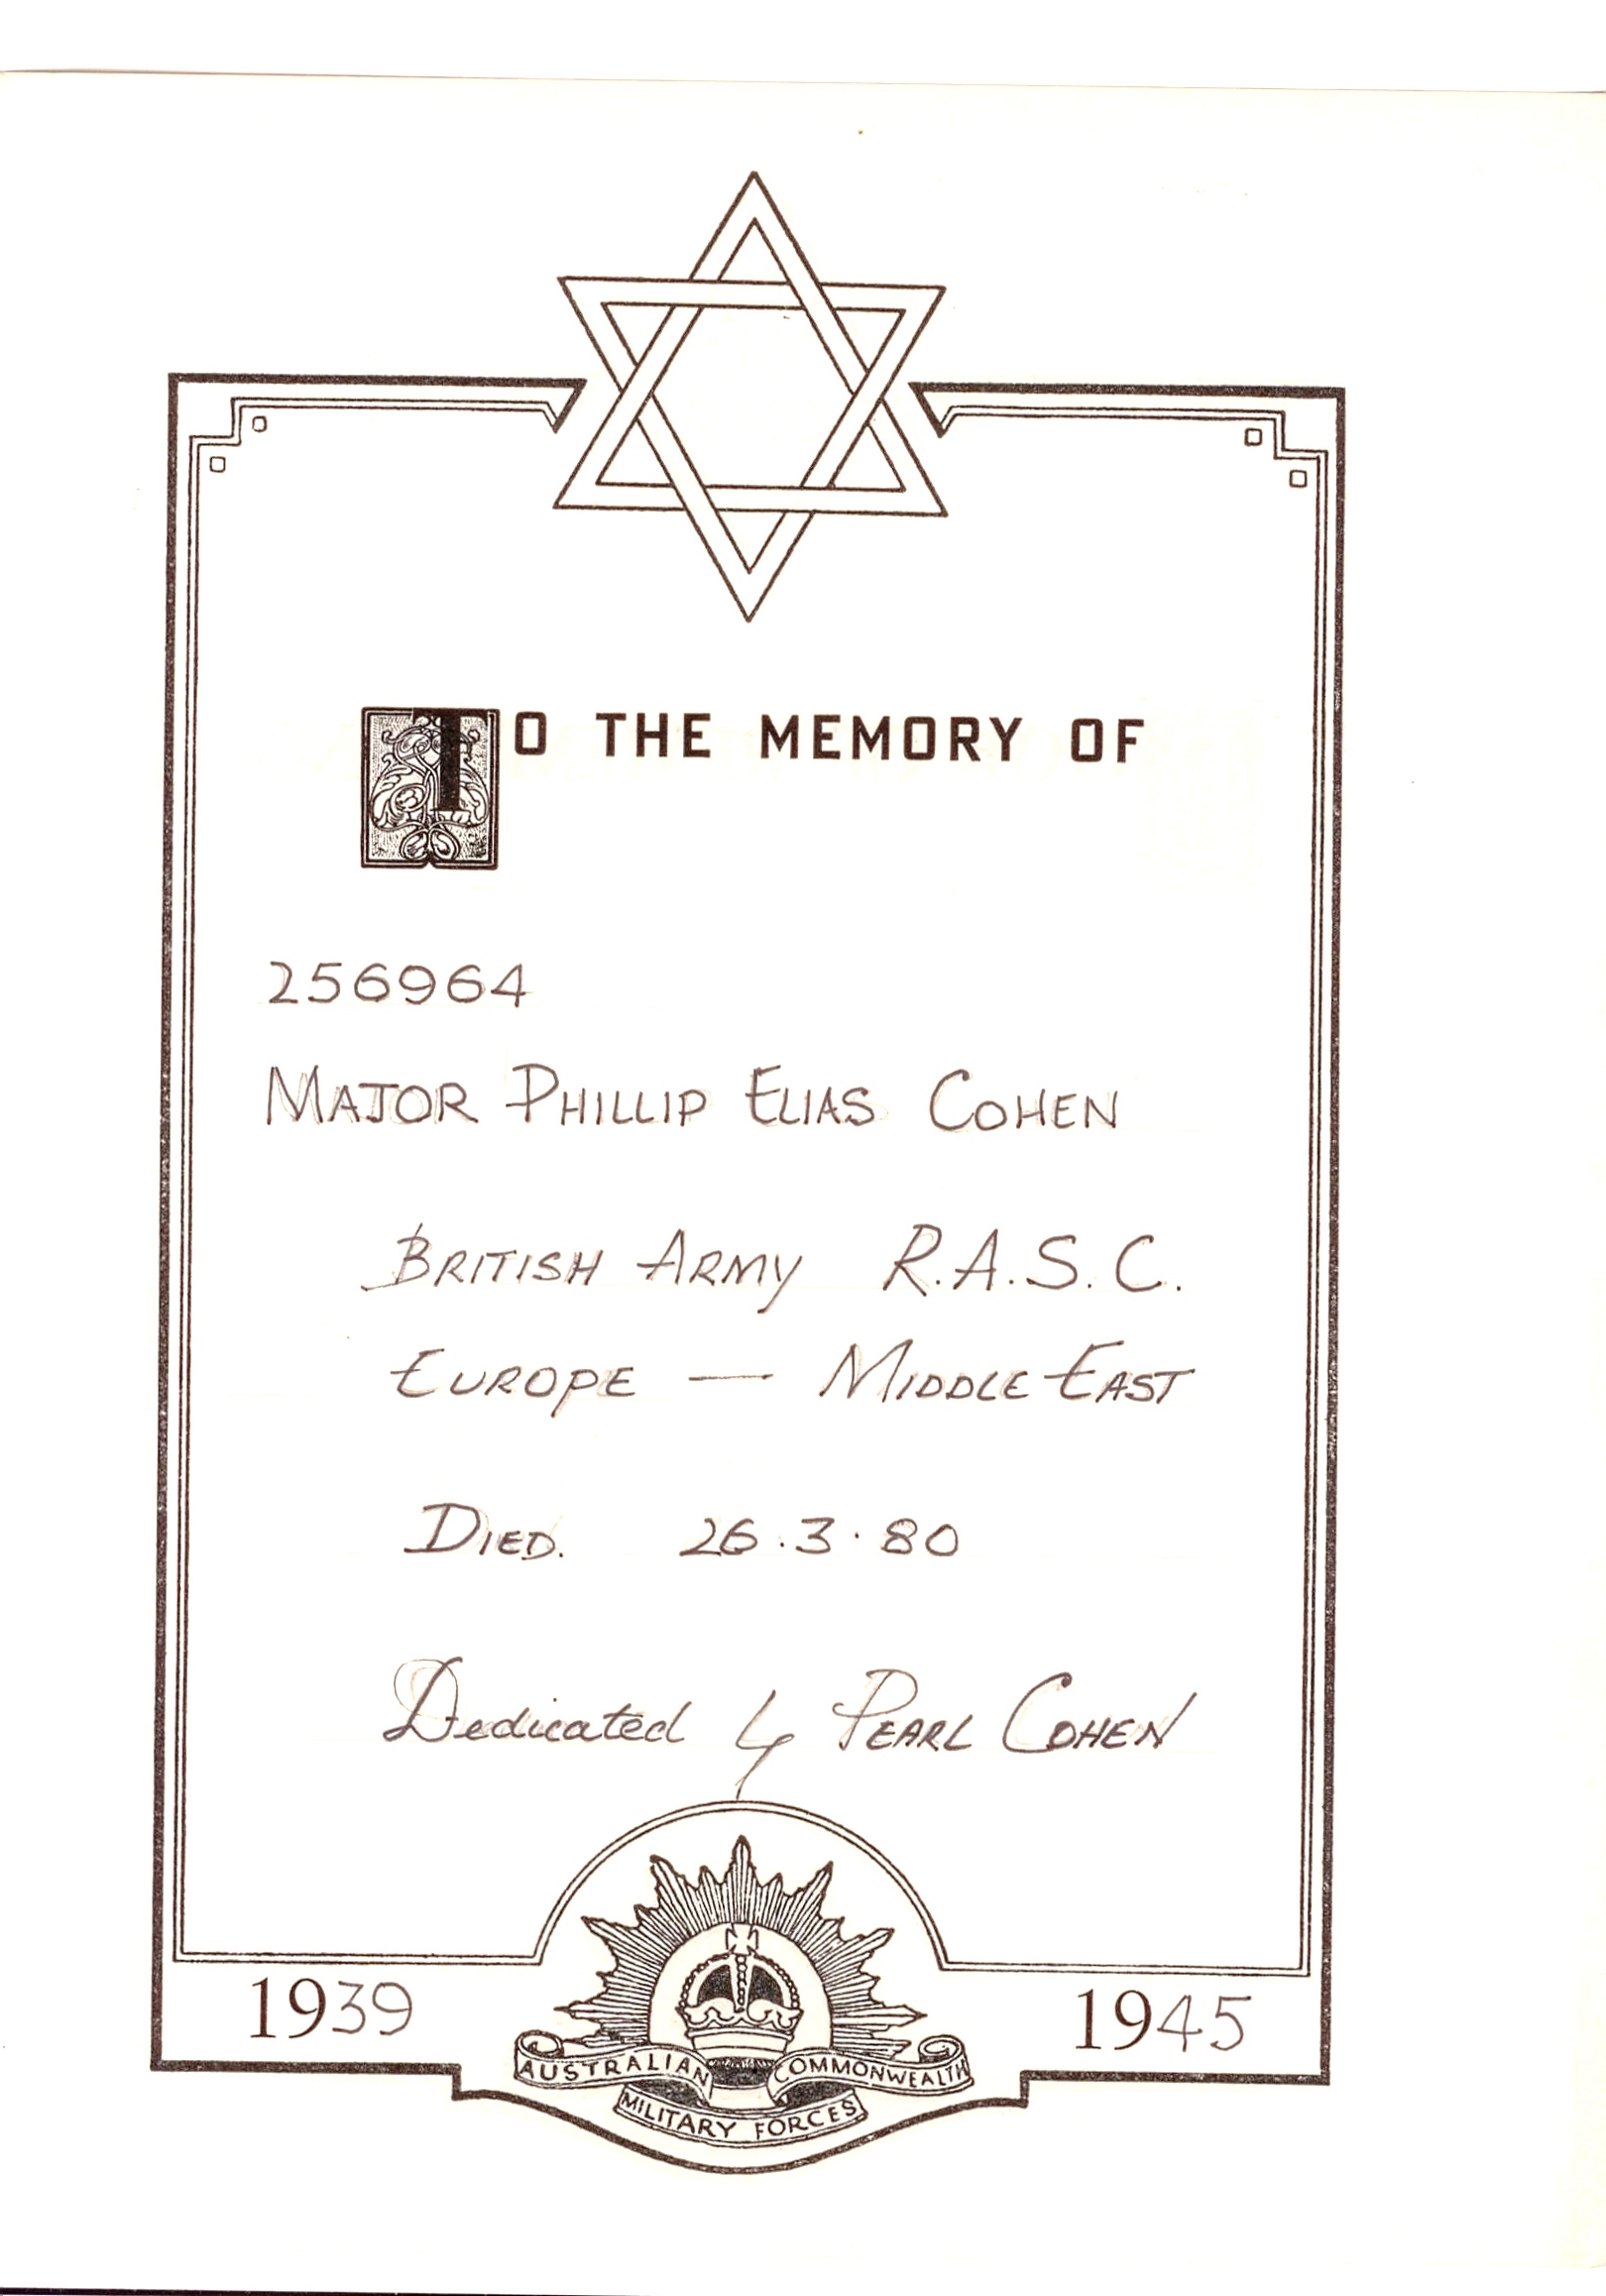 TO THE MEMORY OF
256964
MAJOR PHILLIP ELIAS COHEN
BRITISH ARMY R.A.S.C.
EUROPE — MIDDLE EAST
DIED. 26.3.80
Dedicated by PEARL COHEN
1939
1945
AUSTRALIAN COMMONWEALTH
MILITARY FORCES